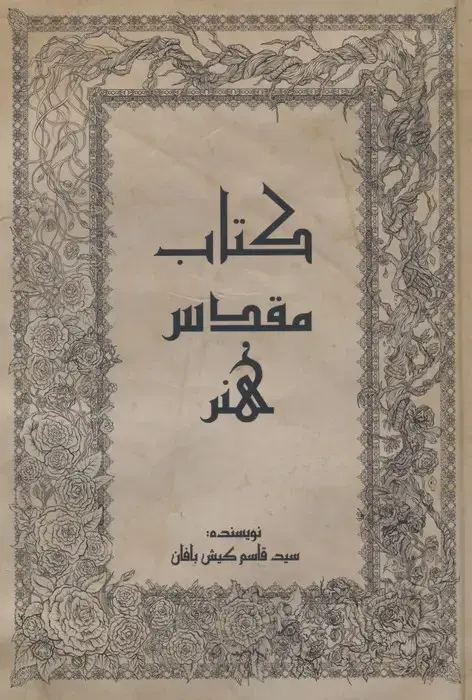 کتاب
مقدس
هُنر
نویسنده:
سید قاسم کیش بافان